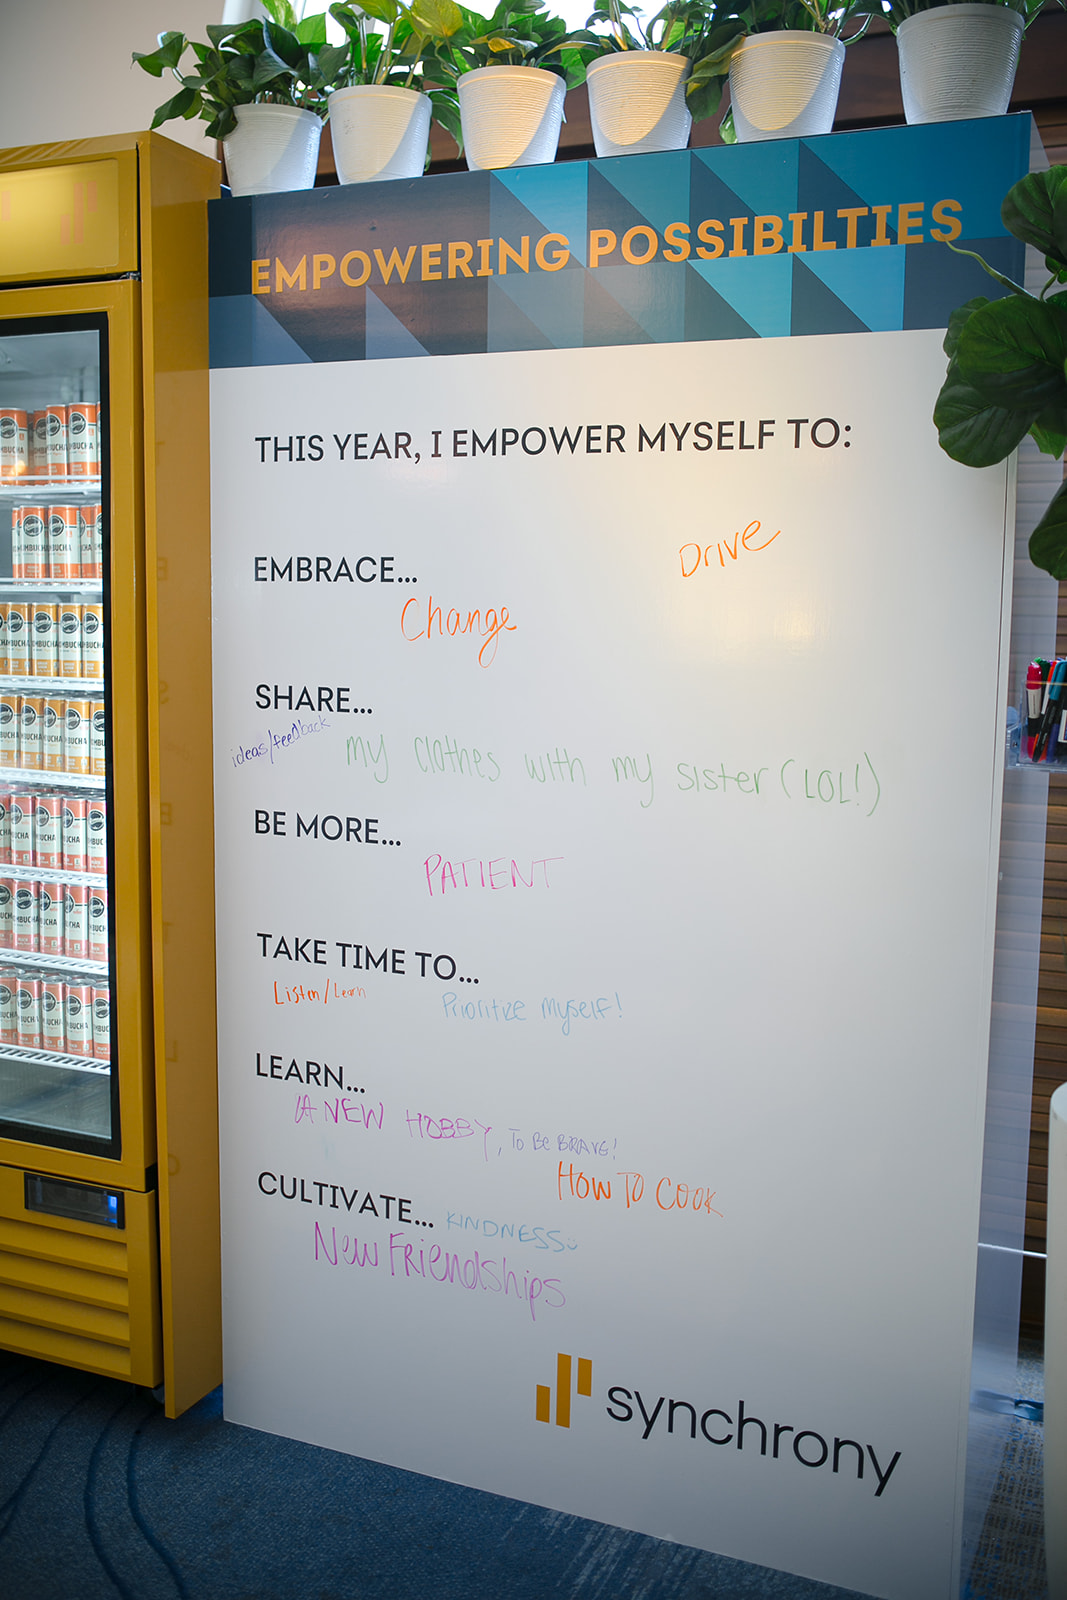 EMPOWERING POSSIBILTIES
THIS YEAR, I EMPOWER MYSELF TO:
Drive
EMBRACE...
Change
SHARE...
ideas/feedback
my clothes with my sister (LOL!)
BE MORE...
PATIENT
TAKE TIME TO...
Listen/Learn
Prioritize myself!
LEARN...
A NEW HOBBY, TO BE BRAVE!
HOW TO COOK
CULTIVATE... KINDNESS
New Friendships
synchrony